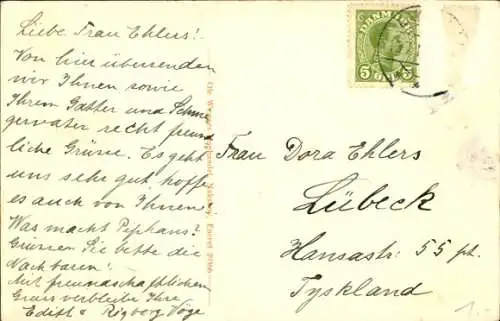 Liebe Frau Ehlers!
Von hier übersenden
wir Ihnen sowie
Ihrem Gatten und Schwie
gervater recht freund
liche Grüsse. Es geht
uns sehr gut, hoffe
es auch von Ihnen!
Was macht Piphans?
Grüssen Sie bitte die
Nachbaren!
Mit freundschaftlichen
Gruss verbleibe Ihre
Edith & Rigborg Vöge
DANMARK
5 5
Frau Dora Ehlers
Lübeck
Hansastr. 55 pt.
Tyskland
1.